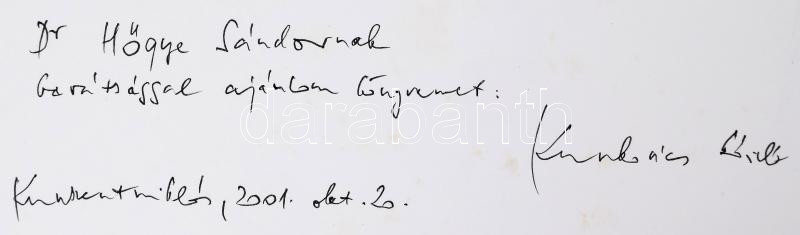 Dr Hőgye Sándornak
barátsággal ajánlom könyvemet:
darabanth
Kunkovács László
Kunszentmiklós, 2001. okt. 20.